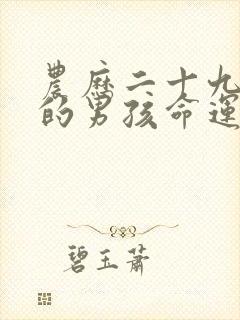 農歷二十九
的男孩命運
碧玉蕭